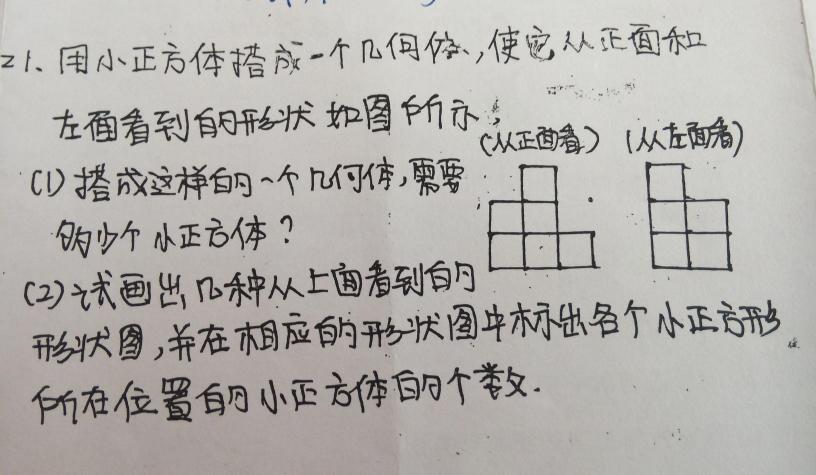 21、用小正方体搭成一个几何体,使它从正面和
左面看到的形状如图所示;
(从正面看) (从左面看)
(1)搭成这样的一个几何体,需要
多少个小正方体?
(2)试画出几种从上面看到的
形状图,并在相应的形状图中标出各个小正方形
所在位置的小正方体的个数.